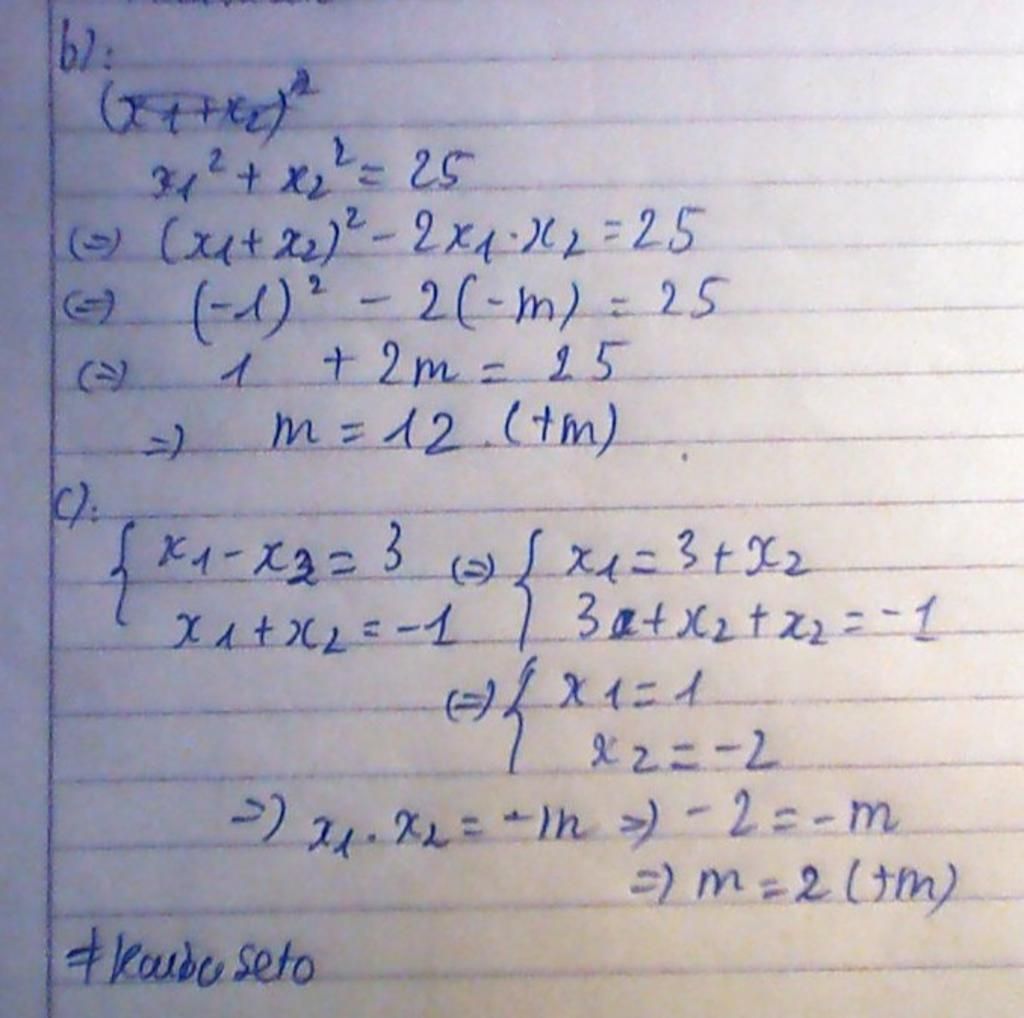 b):
(x1+x2)²
x1² + x2² = 25
(=) (x1 + x2)² - 2x1 · x2 = 25
(=) (-1)² - 2(-m) = 25
(=) 1 + 2m = 25
=) m = 12 . (+m)
c):
{ x1 - x2 = 3 (=) { x1 = 3 + x2
x1 + x2 = -1 3 + x2 + x2 = -1
(=) { x1 = 1
x2 = -2
=) x1 . x2 = -m =) -2 = -m
=) m = 2 (+m)
seto